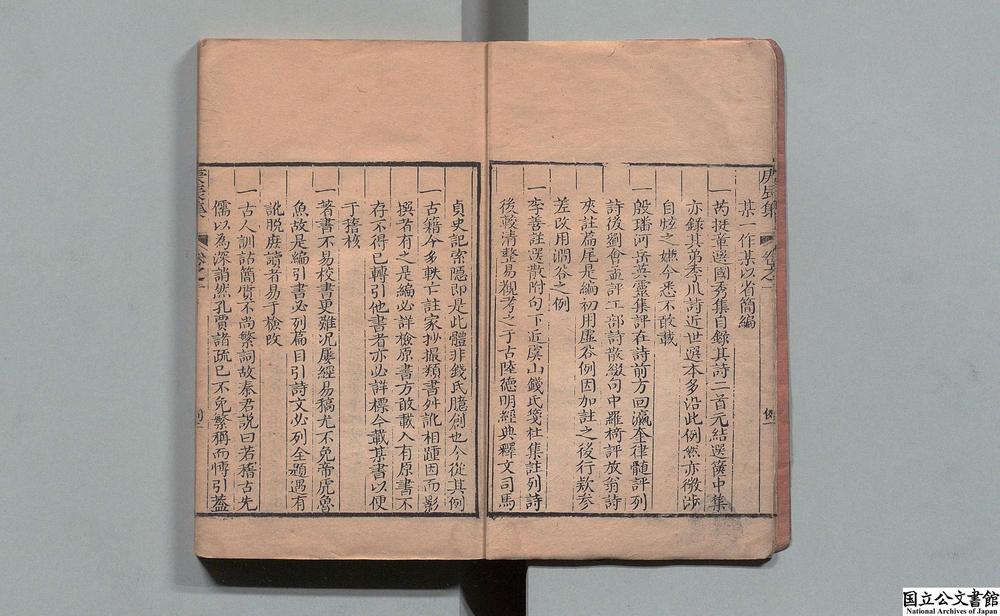 庚辰集
某一作某以省簡編
一芮挺章選國秀集自錄其詩二首元結選篋中集
亦錄其弟季川詩近世選本多沿此例然亦微涉
自炫之嫌今悉不敢載
一殷璠河岳英靈集評在詩前方回瀛奎律髓評列
詩後劉會孟評工部詩散綴句中羅椅評放翁詩
夾註篇尾是編初用虛谷例因加註之後行款參
差改用澗谷之例
一李善註選散附句下近虞山錢氏箋杜集註列詩
後較清整易觀考之于古陸德明經典釋文司馬
貞史記索隱即是此體非錢氏臆創也今從其例
一古籍今多軼亡註家抄撮類書舛訛相踵因而影
撰者有之是編必詳檢原書方敢載入有原書不
存不得已轉引他書者亦必詳標今載某書以便
于稽核
一著書不易校書更難况屢經易稿尤不免帝虎魯
魚故是編引書必列篇目引詩文必列全題遇有
訛脫庶讀者易于檢改
一古人訓詁簡質不尚繁詞故秦君說曰若稽古尤
儒以為深誚然孔賈諸疏已不免繁稱而慱引蓋
国立公文書館
National Archives of Japan